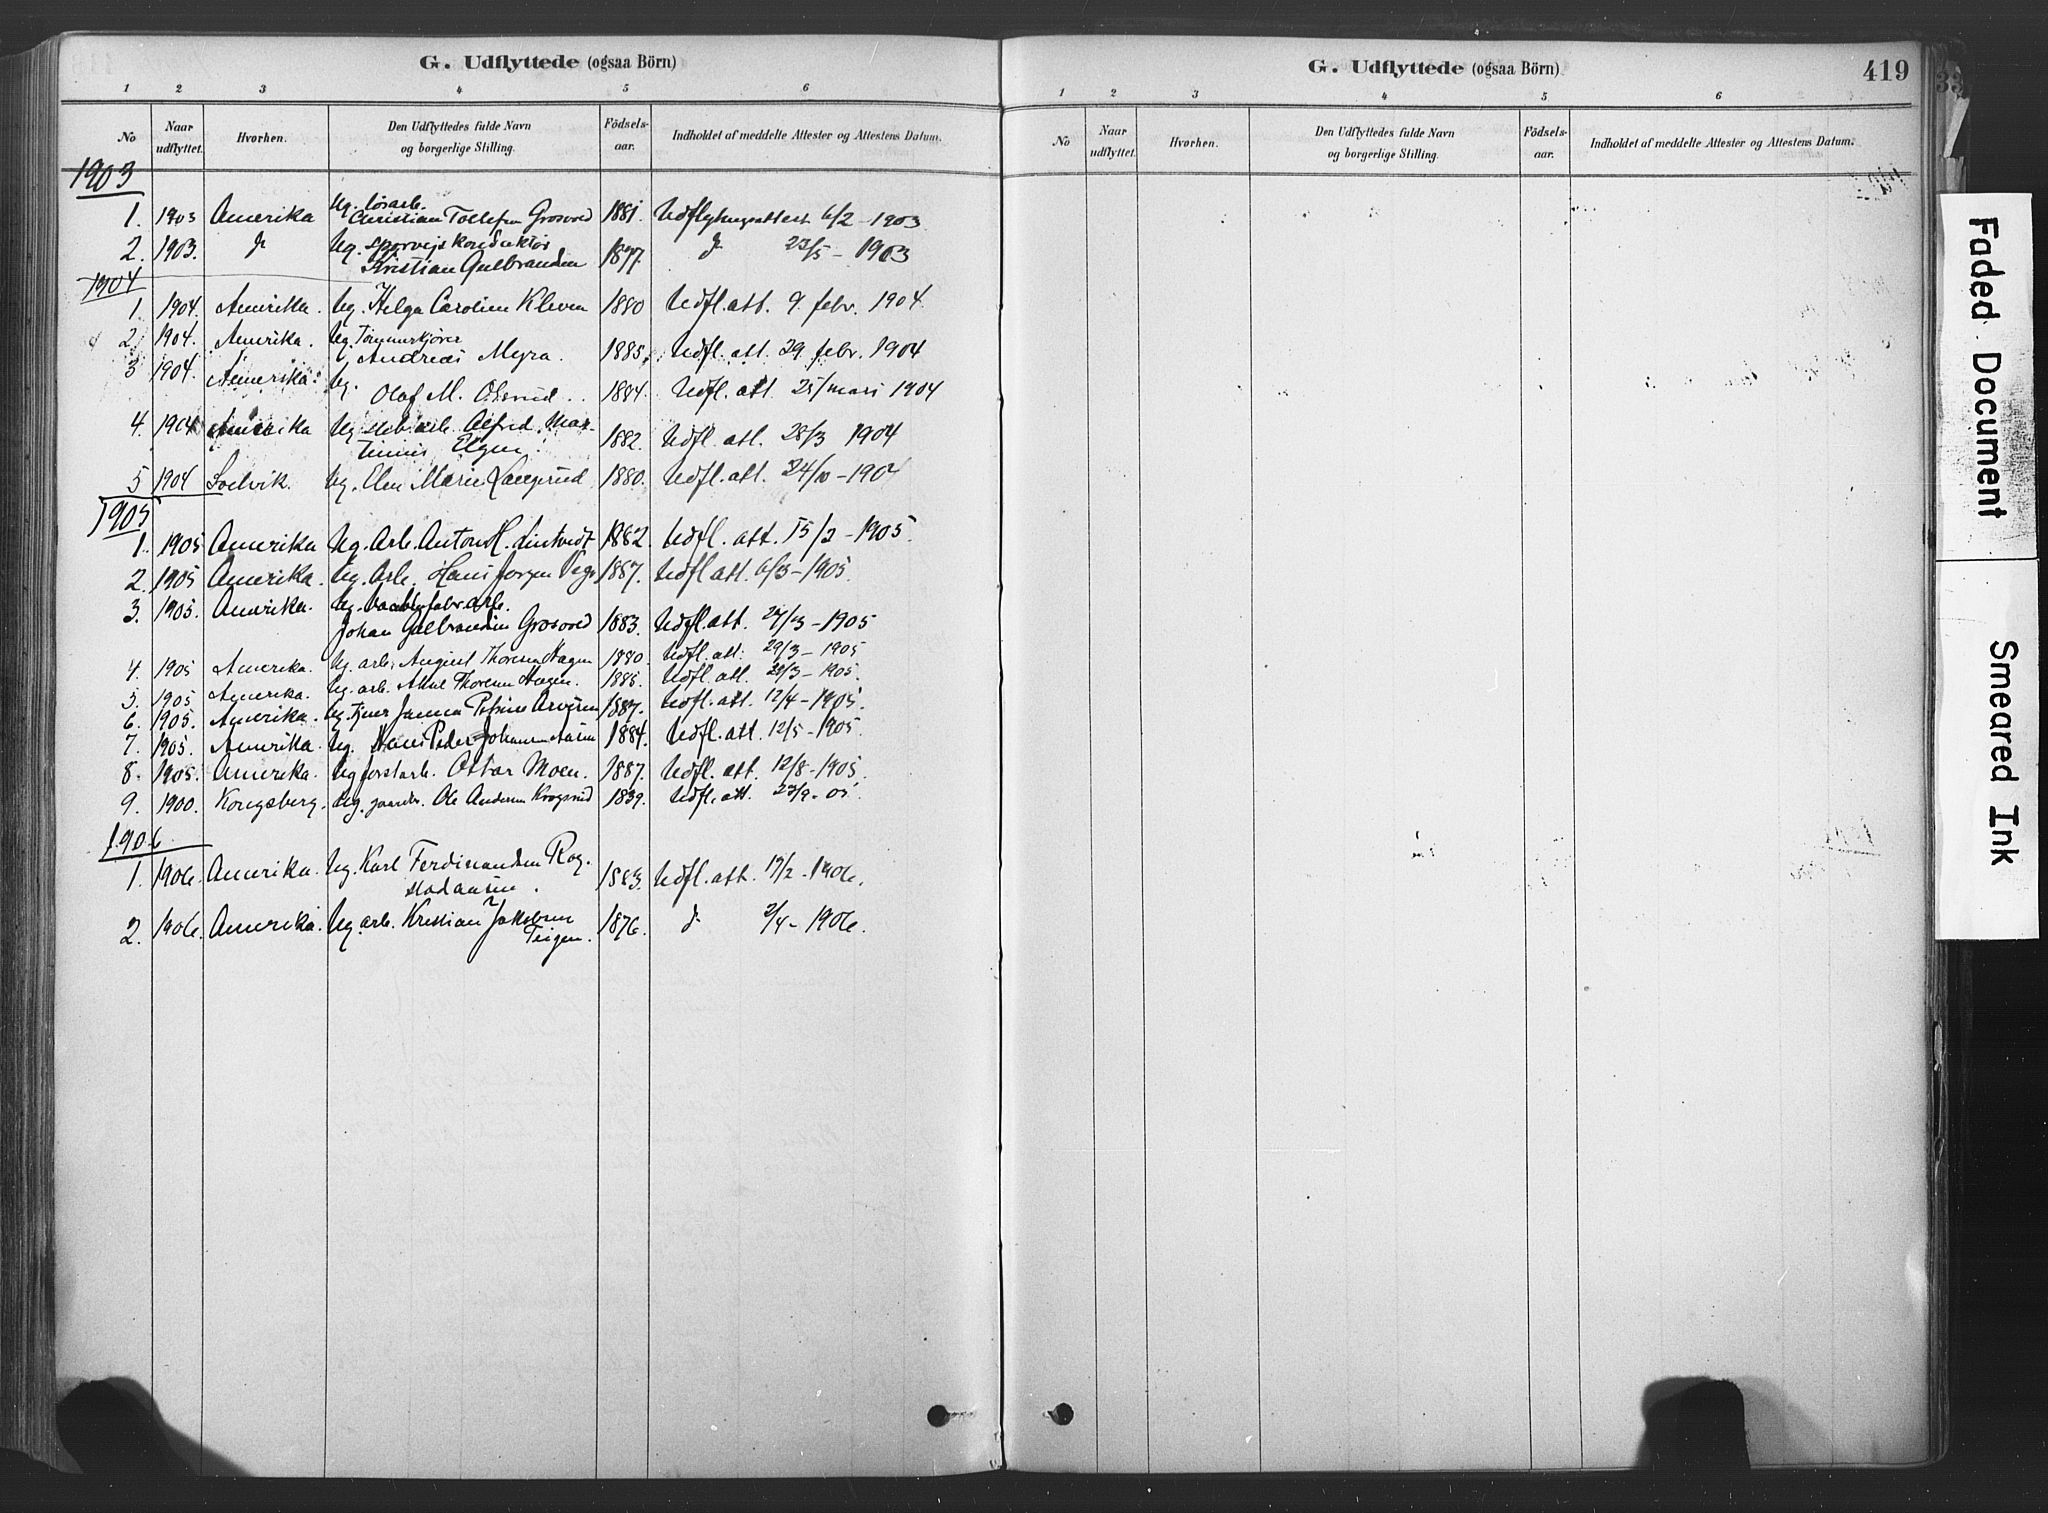 G. Udflyttede (ogsaa Börn)
1 2 3 4 5 6
No Naar udflyttet. Hvorhen. Den Udflyttedes fulde Navn og borgerlige Stilling. Födsels-aar. Indholdet af meddelte Attester og Attestens Datum.
1903
1. 1903 Amerika Ug. løsarb. Christian Tollefsen Grosvold 1881. Udflytningsattest 6/2 - 1903
2. 1903. d Ug. sporvejskonduktør Kristian Gulbrandsen 1877. d 23/5 - 1903
1904
1. 1904. Amerika. Ug. Helga Caroline Kleven 1880 Udfl. att. 9. febr. 1904.
2. 1904. Amerika. Ug. Tømmerkjører Andreas Myra. 1885. Udfl. att. 29. febr. 1904
3 1904. Amerika. Ug. Olaf M. 1884. Udfl. att. 25/mars 1904
4. 1904 Amerika Ug. arb. Alfred Mar-
tinius 1882. Udfl. att. 28/3 1904
5 1904 Svelvik. Ug. Elen Marie Langerud. 1880. Udfl. att. 24/10 - 1904
1905
1. 1905 Amerika Ug. Arb. Anton H. Lintvedt 1882. Udfl. att. 15/2 - 1905
2. 1905 Amerika. Ug. Arb. Hans Jørgen 1887. Udfl att. 6/3 - 1905.
3. 1905. Amerika. Ug. arb. Johan Gulbrandsen Grosvold 1883. Udfl. att. 27/3 - 1905
4. 1905 Amerika. Ug. arb. August Thoresen Hagen 1880. Udfl. att. 29/3 - 1905
5. 1905 Amerika. Ug. arb. Thoresen Hagen. 1885. Udfl. att. 29/3 - 1905.
6. 1905. Amerika. Ug. tjener 1887. Udfl. att. 12/4 - 1905.
7. 1905. Amerika. Ug. Hans Peder Johansen Aasen 1884. Udfl. att. 12/5 - 1905.
8. 1905. Amerika. Ug forstarb. Ottar Moen. 1887. Udfl. att. 12/8 - 1905.
9. 1900. Kongsberg. Ug. gaardbr. Ole Andersen Krogsrud 1839. Udfl. att. 23/9 - 05
1906
1. 1906. Amerika. Ug. Karl Ferdinandsen Rog-
stadaasen. 1883. Udfl. att. 17/2 - 1906.
2. 1906. Amerika. Ug arb. Kristian Jakobsen
Teigen. 1876. d 2/4 - 1906.
G. Udflyttede (ogsaa Börn)
419
1 2 3 4 5 6
No Naar udflyttet. Hvorhen. Den Udflyttedes fulde Navn og borgerlige Stilling. Födsels-aar. Indholdet af meddelte Attester og Attestens Datum.
Faded Document
Smeared Ink